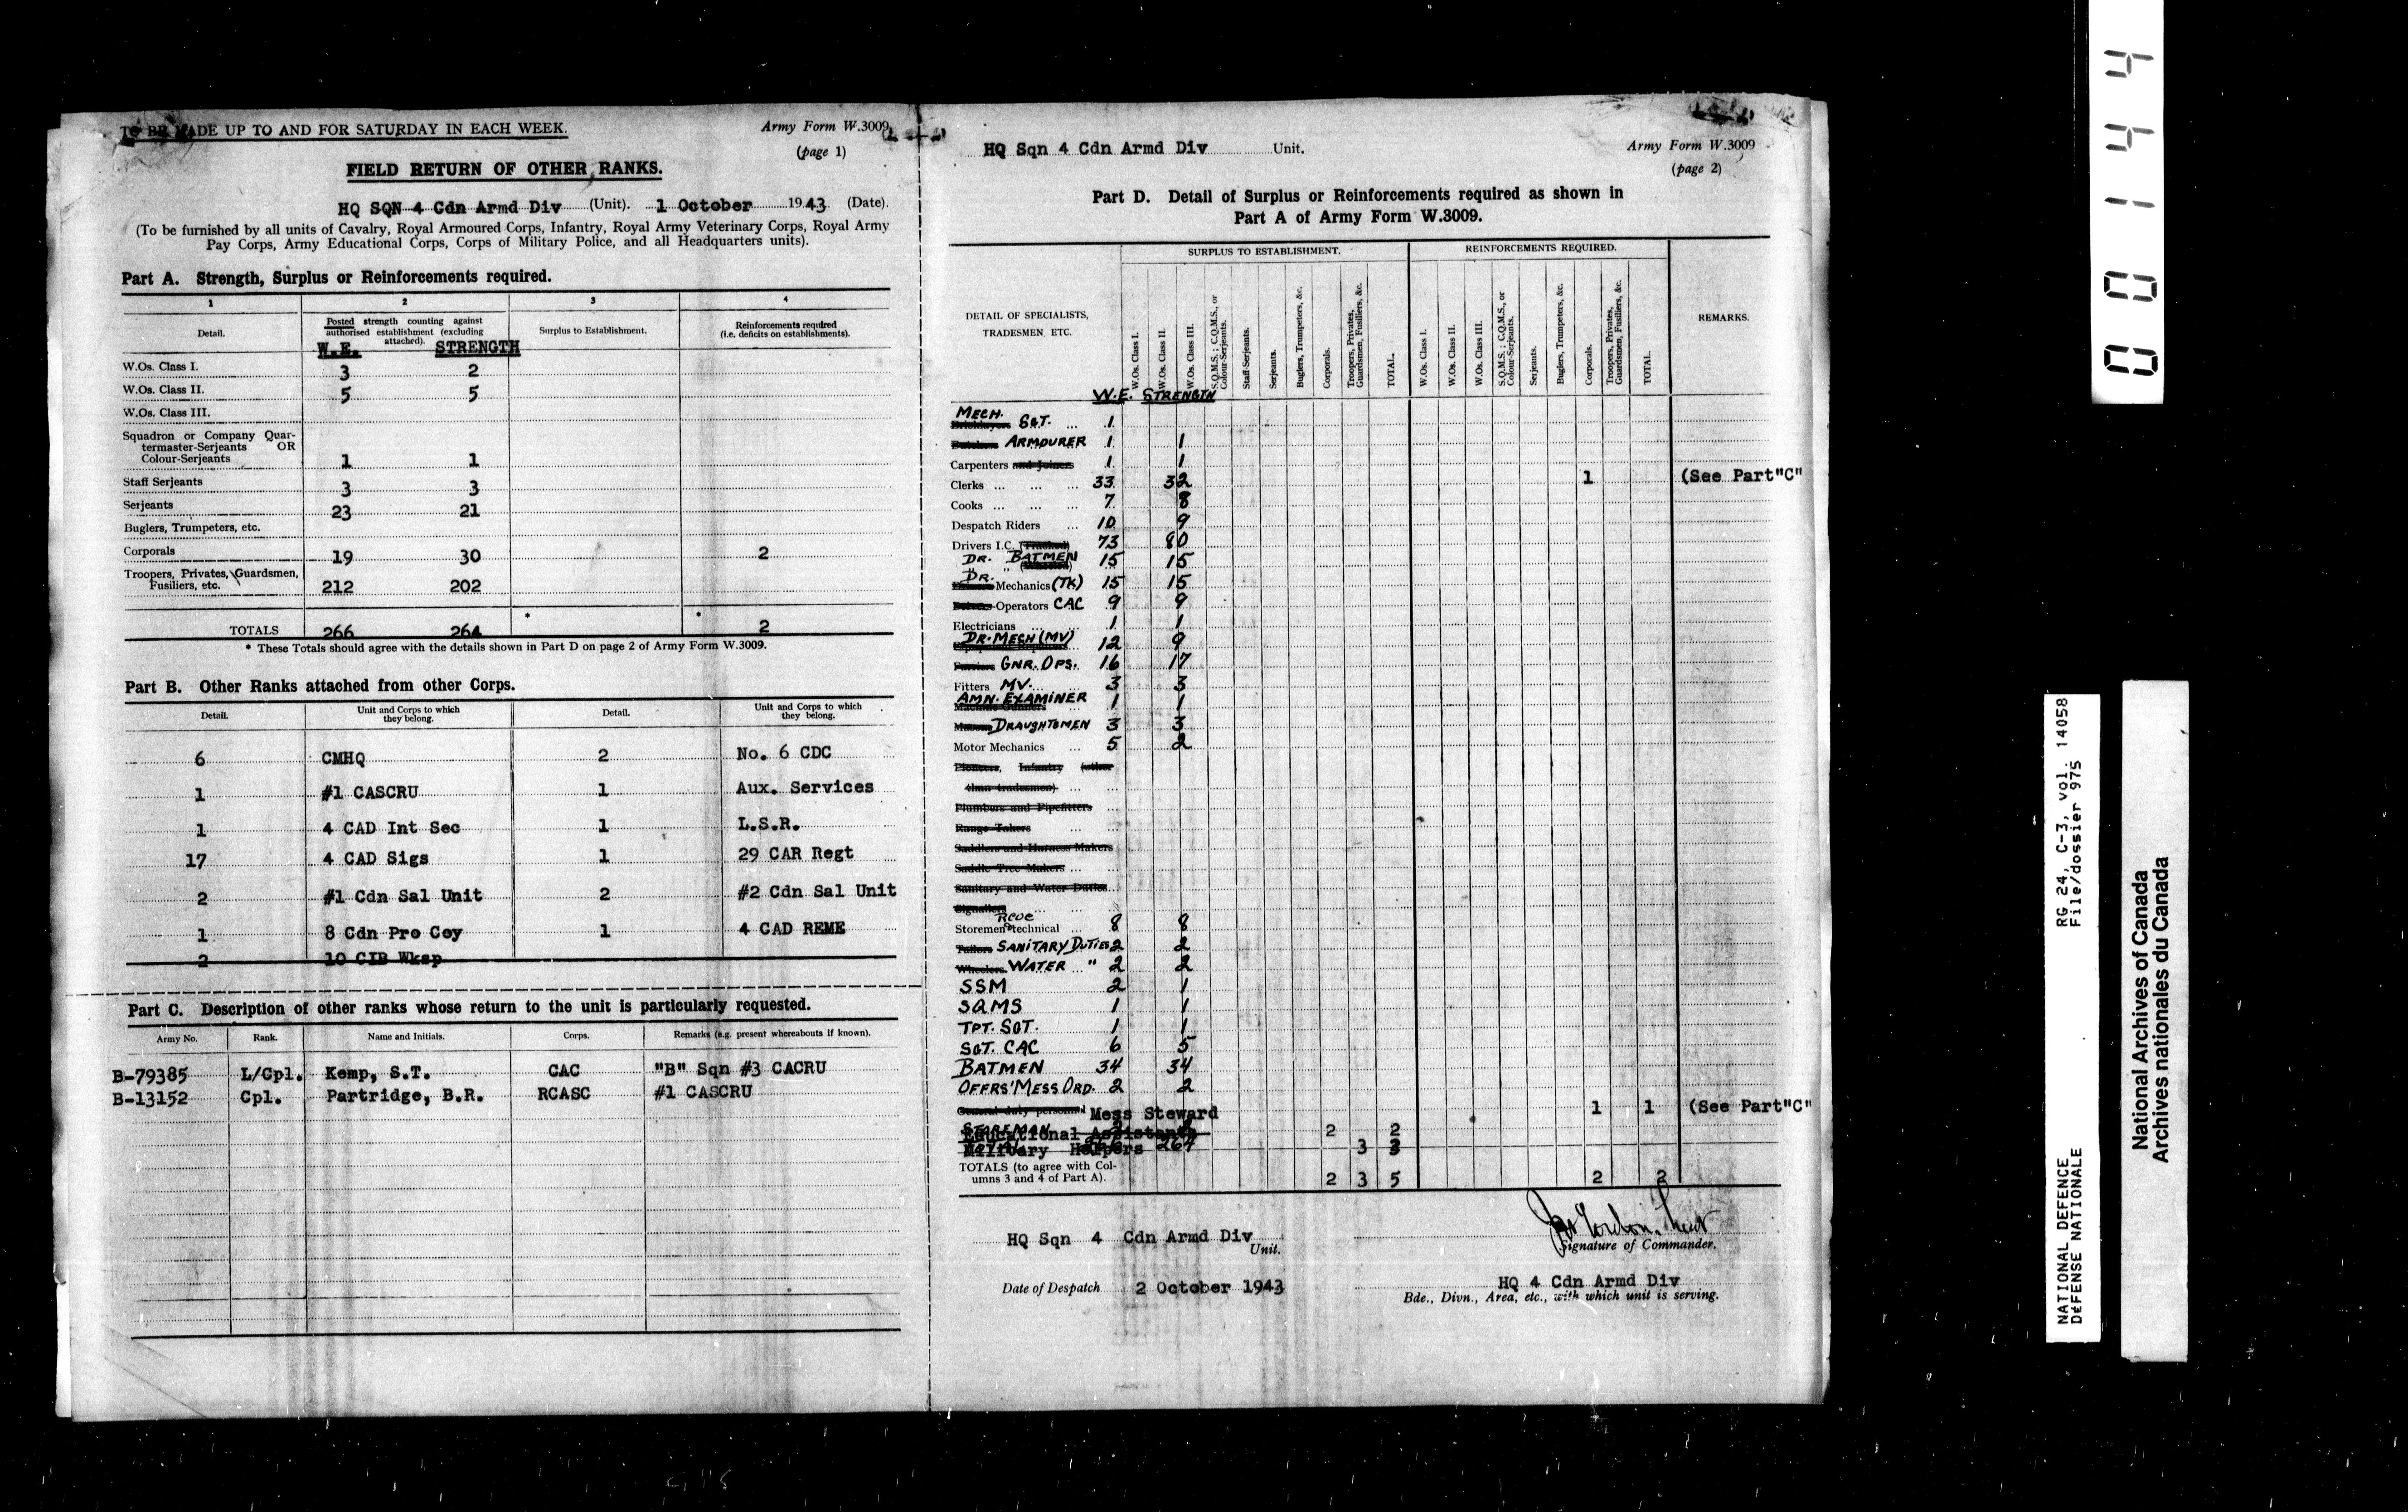 TO BE MADE UP TO AND FOR SATURDAY IN EACH WEEK.
Army Form W.3009
(page 1)
FIELD RETURN OF OTHER RANKS.
HQ SQN 4 Cdn Armd Div (Unit). 1 October 1943 (Date).
(To be furnished by all units of Cavalry, Royal Armoured Corps, Infantry, Royal Army Veterinary Corps, Royal Army
Pay Corps, Army Educational Corps, Corps of Military Police, and all Headquarters units).
Part A. Strength, Surplus or Reinforcements required.
1 2 3 4
Detail. Posted strength counting against authorised establishment (excluding attached). Surplus to Establishment. Reinforcements required (i.e. deficits on establishments).
W.E. STRENGTH
W.Os. Class I. 3 2
W.Os. Class II. 5 5
W.Os. Class III.
Squadron or Company Quar-
termaster-Serjeants OR
Colour-Serjeants 1 1
Staff Serjeants 3 3
Serjeants 23 21
Buglers, Trumpeters, etc.
Corporals 19 30 2
Troopers, Privates, Guardsmen,
Fusiliers, etc. 212 202
* *
TOTALS 266 264 2
* These Totals should agree with the details shown in Part D on page 2 of Army Form W.3009.
Part B. Other Ranks attached from other Corps.
Detail. Unit and Corps to which they belong. Detail. Unit and Corps to which they belong.
6 CMHQ 2 No. 6 CDC
1 #1 CASCRU 1 Aux. Services
1 4 CAD Int Sec 1 L.S.R.
17 4 CAD Sigs 1 29 CAR Regt
2 #1 Cdn Sal Unit 2 #2 Cdn Sal Unit
1 8 Cdn Pro Coy 1 4 CAD REME
2 10 CIB Wksp
Part C. Description of other ranks whose return to the unit is particularly requested.
Army No. Rank. Name and Initials. Corps. Remarks (e.g. present whereabouts if known).
B-79385 L/Cpl. Kemp, S.T. CAC "B" Sqn #3 CACRU
B-13152 Cpl. Partridge, B.R. RCASC #1 CASCRU
HQ Sqn 4 Cdn Armd Div Unit.
Army Form W.3009
(page 2)
Part D. Detail of Surplus or Reinforcements required as shown in
Part A of Army Form W.3009.
DETAIL OF SPECIALISTS,
TRADESMEN, ETC.
SURPLUS TO ESTABLISHMENT.
W.Os. Class I. W.Os. Class II. W.Os. Class III. S.Q.M.S.; C.Q.M.S., or Colour-Serjeants. Staff-Serjeants. Serjeants. Buglers, Trumpeters, &c. Corporals. Troopers, Privates, Guardsmen, Fusiliers, &c. TOTAL.
REINFORCEMENTS REQUIRED.
W.Os. Class I. W.Os. Class II. W.Os. Class III. S.Q.M.S.; C.Q.M.S., or Colour-Serjeants. Serjeants. Buglers, Trumpeters, &c. Corporals. Troopers, Privates, Guardsmen, Fusiliers, &c. TOTAL.
REMARKS.
W.E. STRENGTH
MECH. SGT. 1
ARMOURER 1 1
Carpenters and Joiners 1 1
Clerks 33 32 1 (See Part"C"
Cooks 7 8
Despatch Riders 10 9
Drivers I.C. (Tracked) 73 80
DR. BATMEN 15 15
DR. Mechanics (TK) 15 15
Operators CAC 9 9
Electricians 1 1
DR. MECH (MV) 12 9
GNR. OPS. 16 17
Fitters MV. 3 3
AMN. EXAMINER 1 1
Machine Gunners
DRAUGHTSMEN 3 3
Motor Mechanics 5 2
Pioneers, Infantry (other
than tradesmen)
Plumbers and Pipefitters
Range Takers
Saddlers and Harness Makers
Saddle Tree Makers
Sanitary and Water Duties
Signallers
Storemen technical 8 8
Tailors SANITARY DUTIES 2 2
Wheelers WATER " 2 2
SSM 2 1
SQMS 1 1
TPT. SGT. 1 1
SGT. CAC 6 5
BATMEN 34 34
OFFRS' MESS ORD. 2 2
General duty personnel Mess Steward 1 1 (See Part"C"
Educational Assistants 2 2
Military Helpers 264 3 3
TOTALS (to agree with Col-
umns 3 and 4 of Part A). 2 3 5 2 2
HQ Sqn 4 Cdn Armd Div
Unit.
Signature of Commander.
Date of Despatch 2 October 1943
HQ 4 Cdn Armd Div
Bde., Divn., Area, etc., with which unit is serving.
00144
RG 24, C-3, vol. 14058
File/dossier 975
NATIONAL DEFENCE
DÉFENSE NATIONALE
National Archives of Canada
Archives nationales du Canada